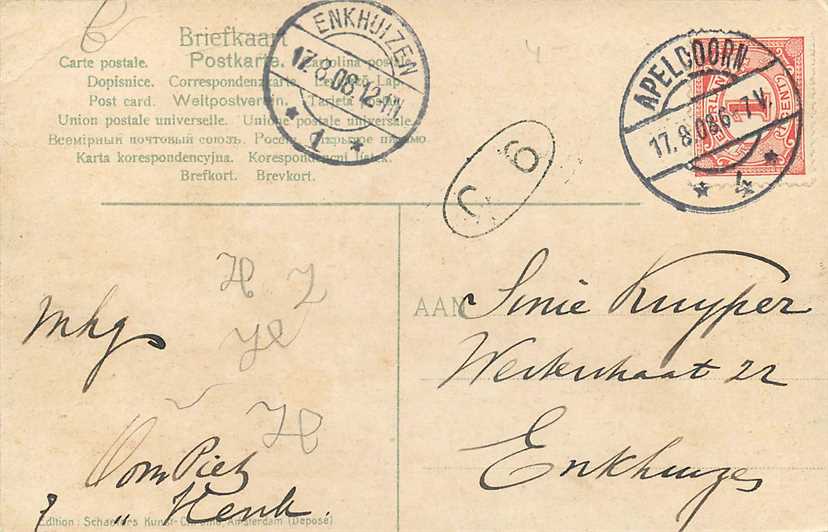 Briefkaart
Carte postale. Postkarte. Carolina postal
Dopisnice. Correspondenzkarte. Lev. Lap.
Post card. Weltpostverein. Tarjeta
Union postale universelle. Unione postale universale.
Всемірный почтовый союзъ. Россія. Открытое письмо
Karta korespondencyjna. Korespondencni listek.
Brefkort. Brevkort.
ENKHUIZEN
17.8.08 12-1
1
APELDOORN
17.8.08 6-7V.
4
1
6
mhg
AAN
Sinie Kuyper
Westerstraat 22
Enkhuizen
Oom Piet
" Henk.
Edition: Schaefers Kunst-Chromo, Amsterdam (Deposé)